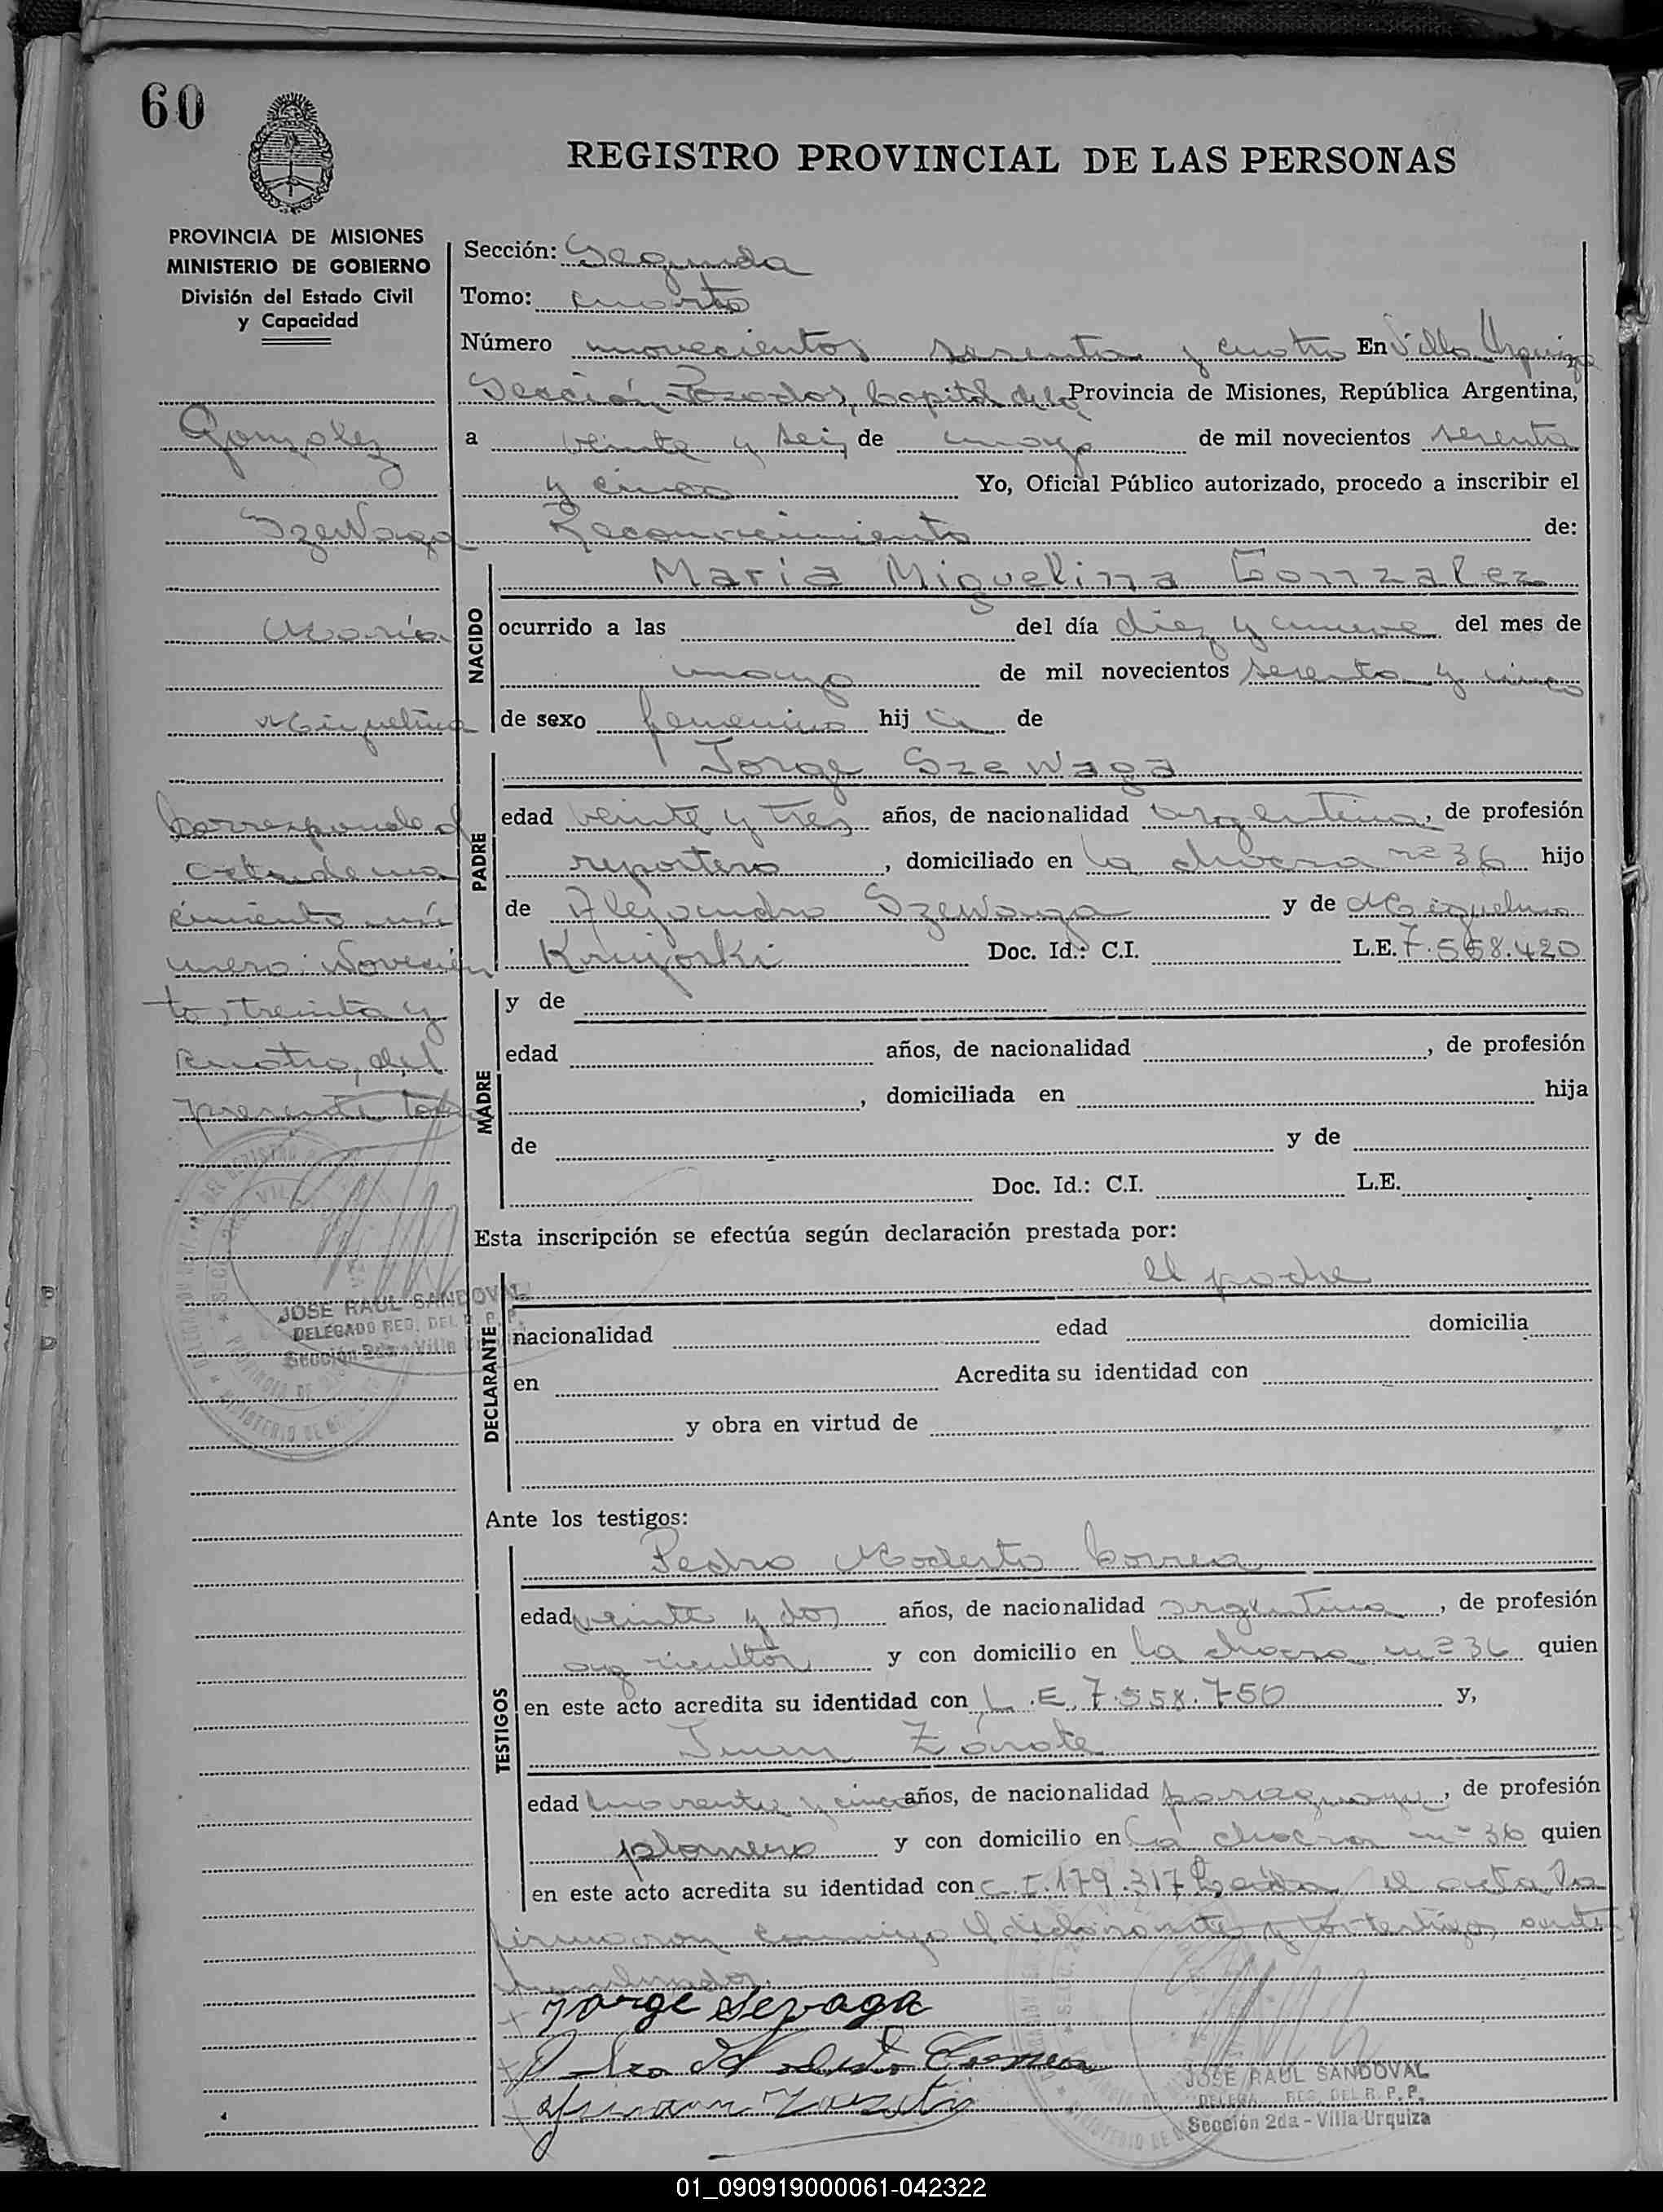 60
REGISTRO PROVINCIAL DE LAS PERSONAS
PROVINCIA DE MISIONES
MINISTERIO DE GOBIERNO
División del Estado Civil
y Capacidad
Gonzalez
Szewaga
Maria
Miguelina
Corresponde al
acta de na
cimiento nú
mero: Novecien
tos treinta y
cuatro, del
presente tomo
JOSE RAUL SANDOVAL
DELEGADO REG. DEL R. P. P.
Sección 2da - Villa
Sección: Segunda
Tomo: cuarto
Número novecientos sesenta y cuatro En Villa Urquiza
Sección Posadas, Capital de la Provincia de Misiones, República Argentina,
a veinte y seis de mayo de mil novecientos sesenta
y cinco Yo, Oficial Público autorizado, procedo a inscribir el
Reconocimiento de:
NACIDO
Maria Miguelina Gonzalez
ocurrido a las del día diez y nueve del mes de
mayo de mil novecientos sesenta y cinco
de sexo femenino hija de
PADRE
Jorge Szewaga
edad veinte y tres años, de nacionalidad argentina, de profesión
reportero, domiciliado en la chacra nº 36 hijo
de Alejandro Szewaga y de Miguelina
Doc. Id.: C.I. L.E. 7.568.420
MADRE
y de
edad años, de nacionalidad , de profesión
, domiciliada en hija
de y de
Doc. Id.: C.I. L.E.
Esta inscripción se efectúa según declaración prestada por:
DECLARANTE
el padre
nacionalidad edad domicilia
en Acredita su identidad con
y obra en virtud de
Ante los testigos:
TESTIGOS
Pedro Modesto Correa
edad veinte y dos años, de nacionalidad argentina, de profesión
agricultor y con domicilio en la chacra nº 36 quien
en este acto acredita su identidad con L.E. 7.558.750 y,
Juan Zárate
edad cuarenta y cinco años, de nacionalidad paraguaya, de profesión
plomero y con domicilio en la chacra nº 36 quien
en este acto acredita su identidad con C.I. 179.317 Leida el acta la
firmaron conmigo el declarante y los testigos ante
Jorge Sevaga
Pedro Modesto Correa
JOSE RAUL SANDOVAL
DELEGA REG. DEL R. P. P.
Sección 2da - Villa Urquiza
01_090919000061-042322